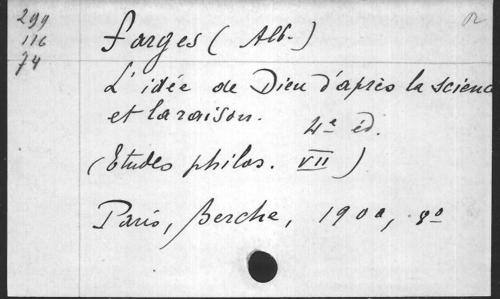 299
116
74
Farges (Alb.)
L'idée de Dieu d'après la science
et la raison. 4e éd.
(Etudes philos. VII)
Paris, Berche, 1900, 8o